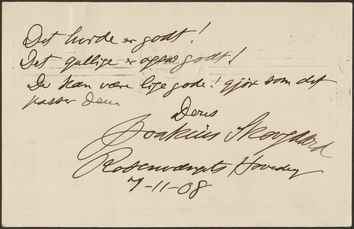 Det hvide er godt!
Det gullige er ogsaa godt!
De kan være lige gode! gjør som det
passer Dem
Deres
Joakim Skovgaard
Rosenvængets Hovedvej
7-11-08